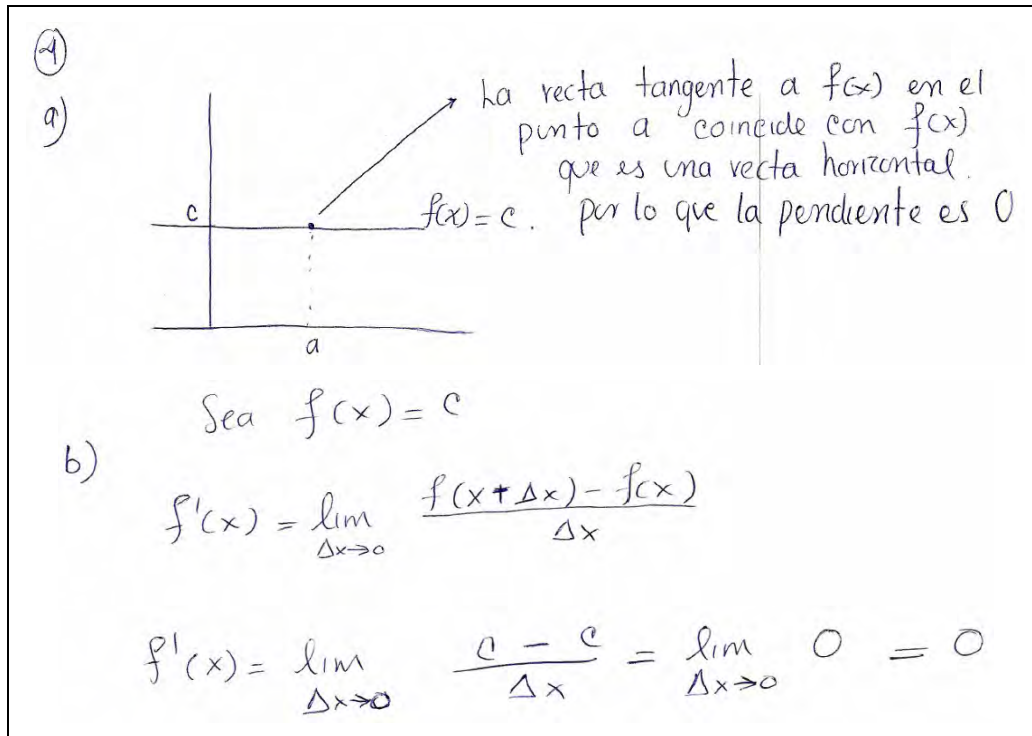 1
a)
La recta tangente a f(x) en el
punto a coincide con f(x)
que es una recta horizontal.
c
f(x) = c. por lo que la pendiente es 0
a
Sea f(x) = c
b)
f'(x) = lim Δx→0 f(x+Δx) - f(x) / Δx
f'(x) = lim Δx→0 c - c / Δx = lim Δx→0 0 = 0